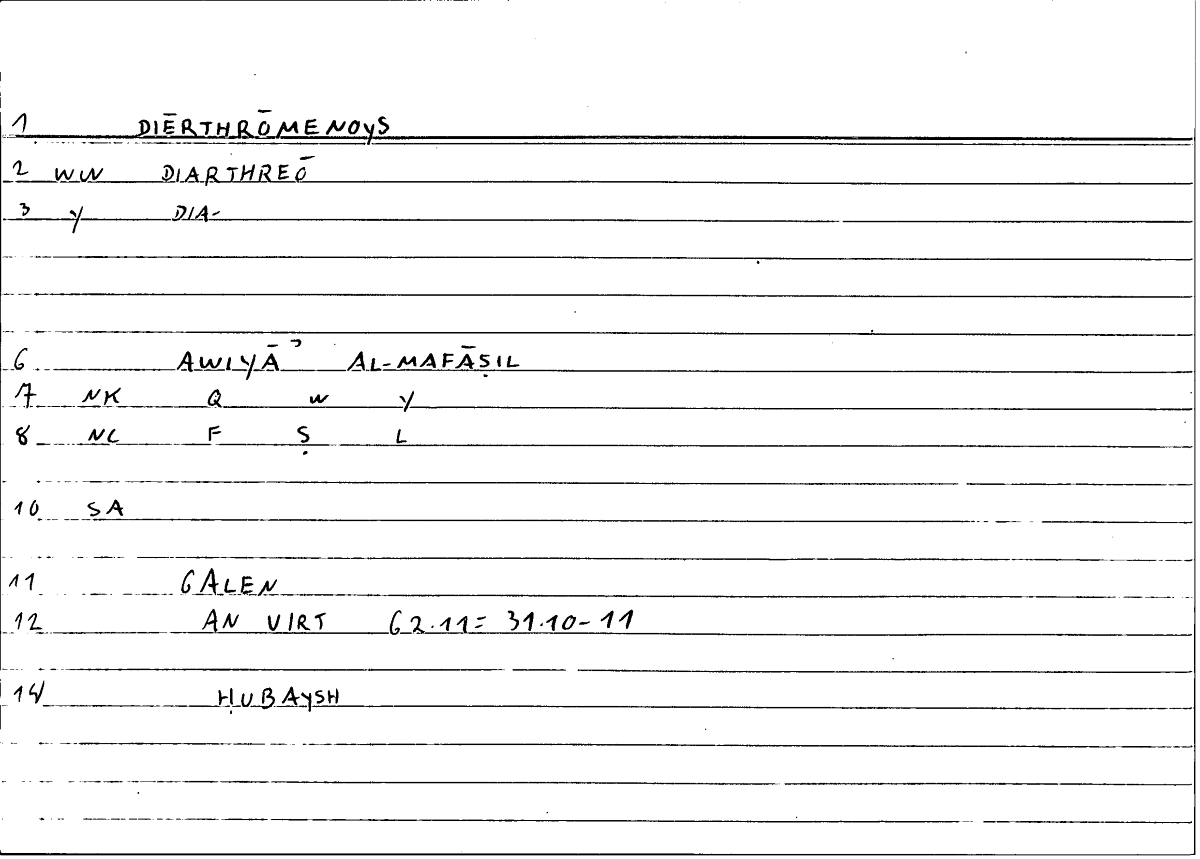 1 DIĒRTHRŌMENOYS
2 WW DIARTHREŌ
3 Y DIA-
6 AWIYĀʾ AL-MAFĀṢIL
7 NK Q W Y
8 NL F Ṣ L
10 SA
11 GALEN
12 AN VIRT 62.11= 31.10-11
14 ḤUBAYSH